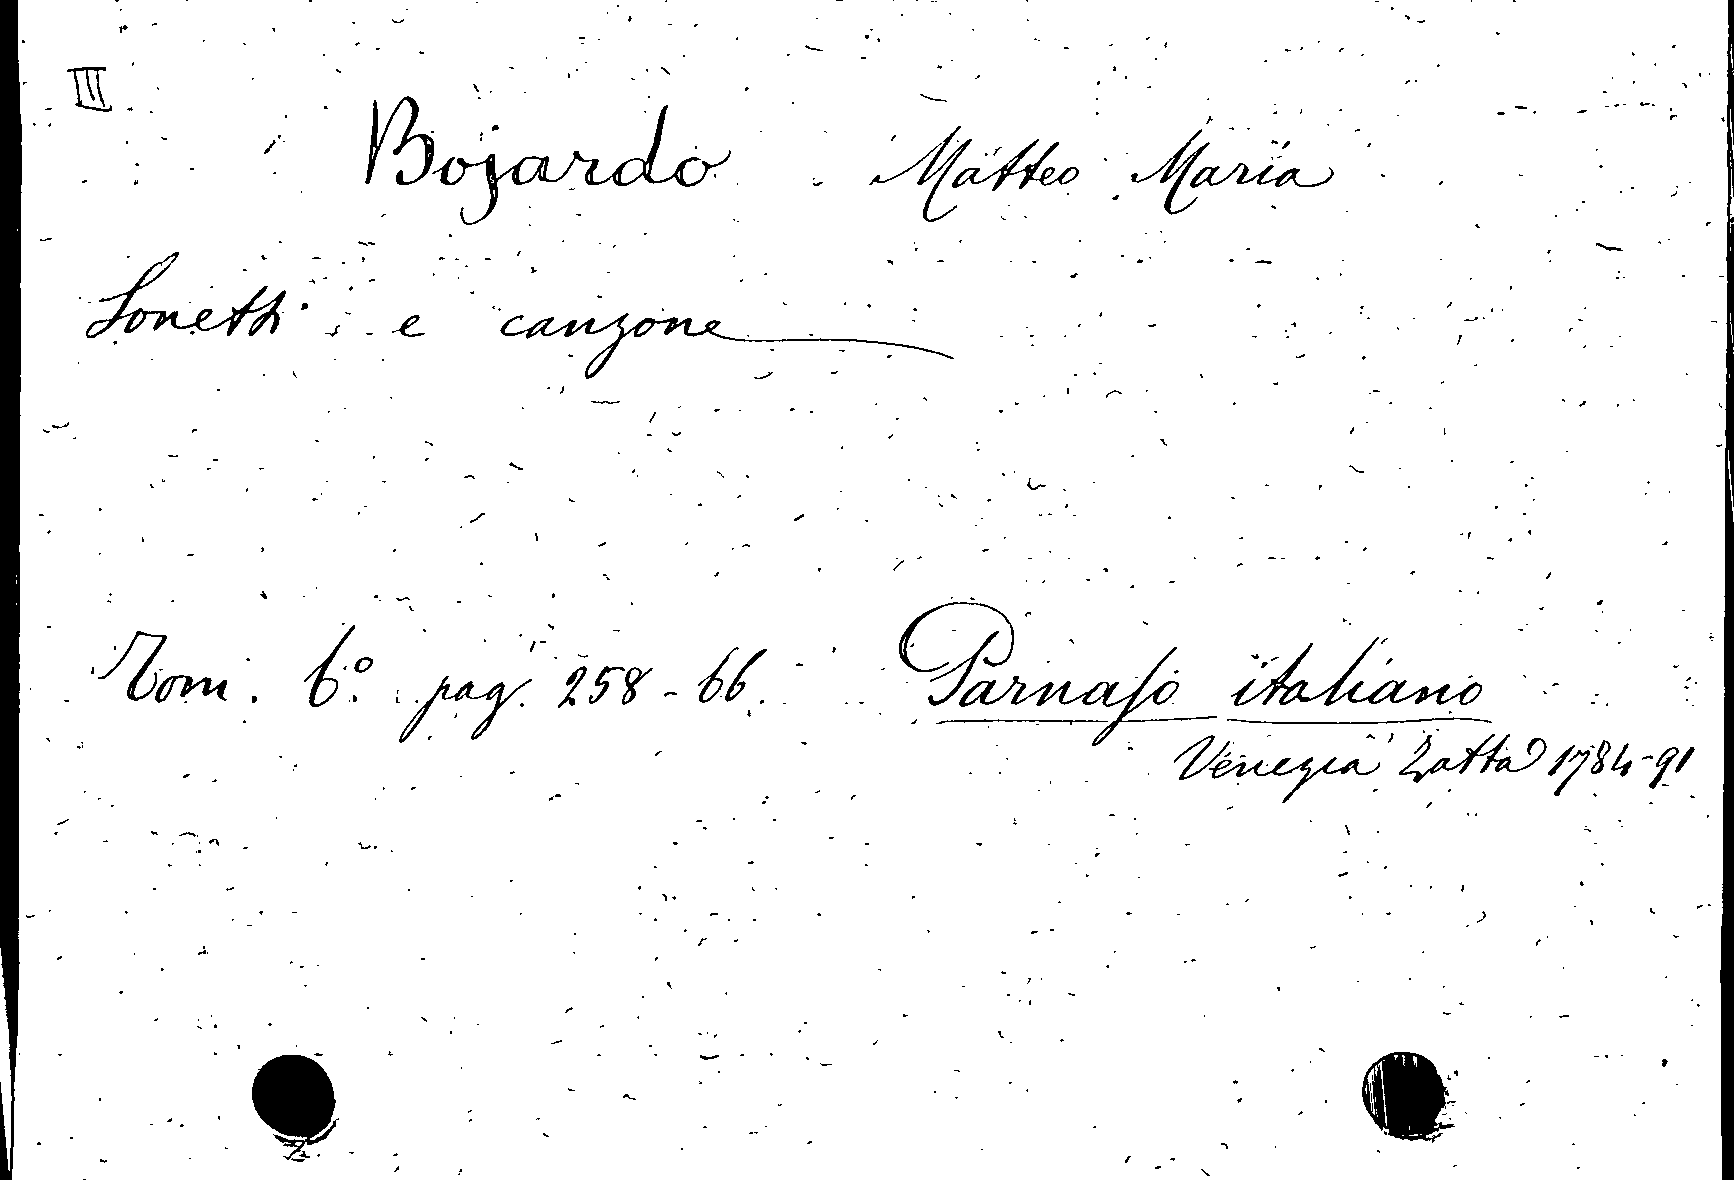 III
Bojardo Matteo Maria
Sonetti e canzone
Tom. 6.° pag. 258-66. Parnaso italiano
Venezia Zatta 1784-91